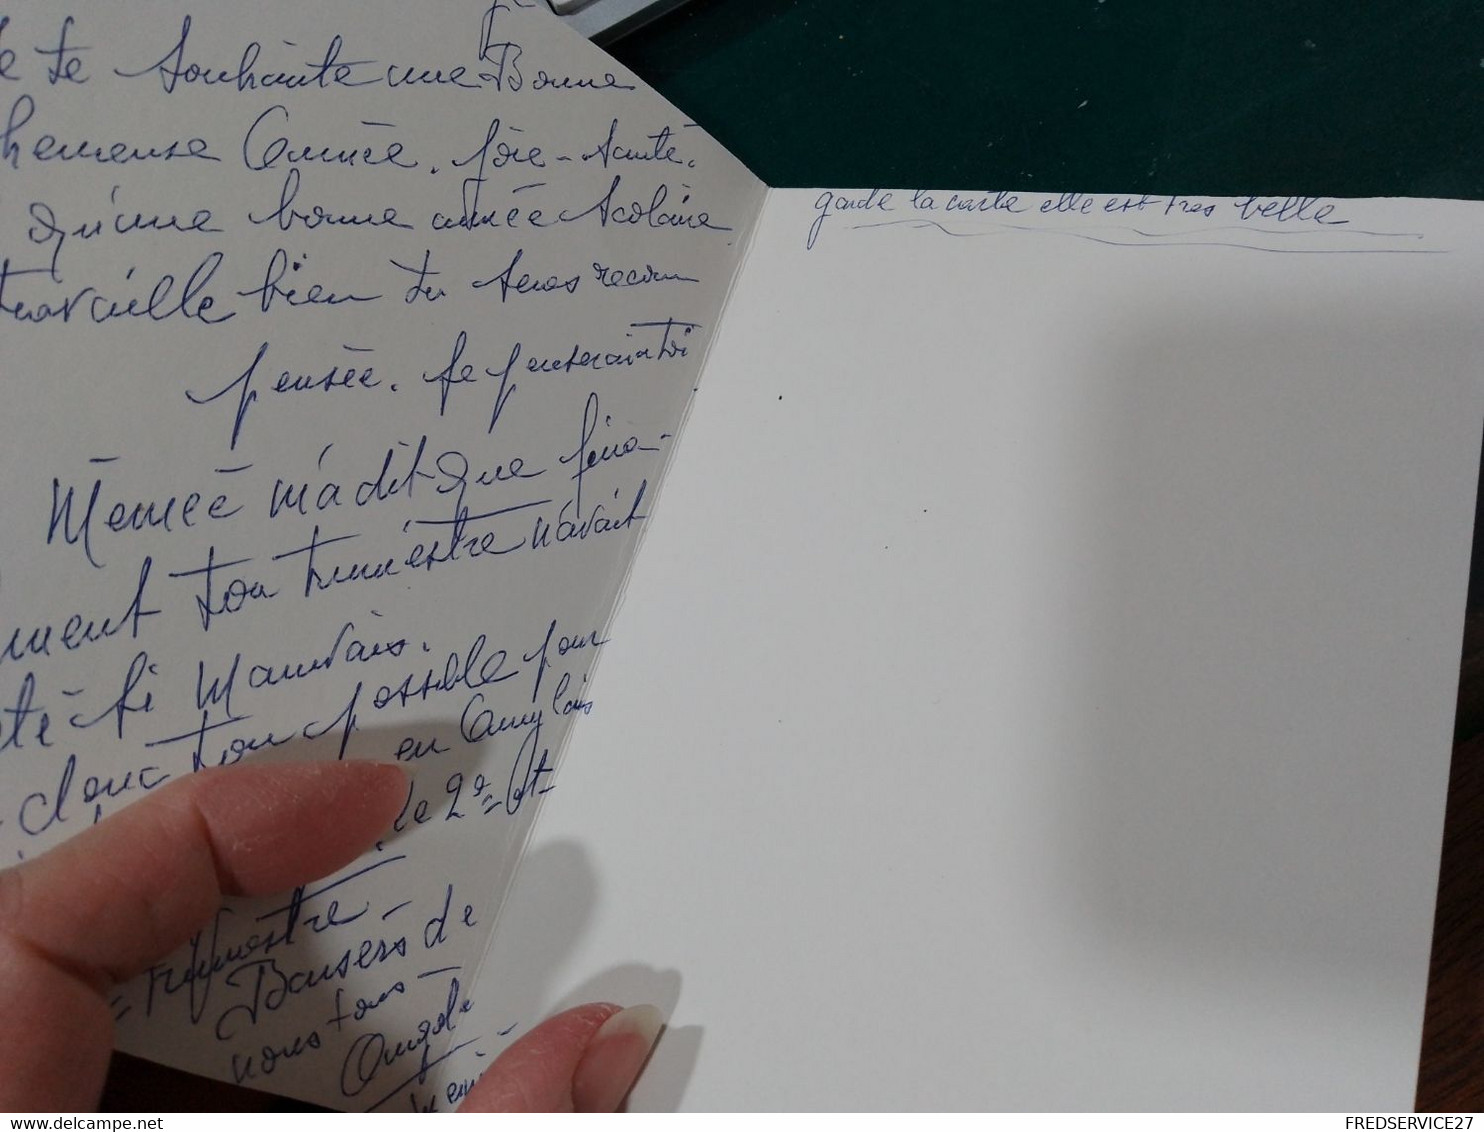 te souhaite une Bonne
heureuse Année. Joie - Santé.
qu'une bonne année scolaire
travaille bien tu seras récom
pensée. Je penserai à toi
Mémée m'a dit que fina-
ment ton trimestre n'avait
été si Mauvais.
donc ton possible pour
en Anglais
le 2e et
= trimestre -
Baisers de
nous tous -
garde la carte elle est très belle
FREDSERVICE27